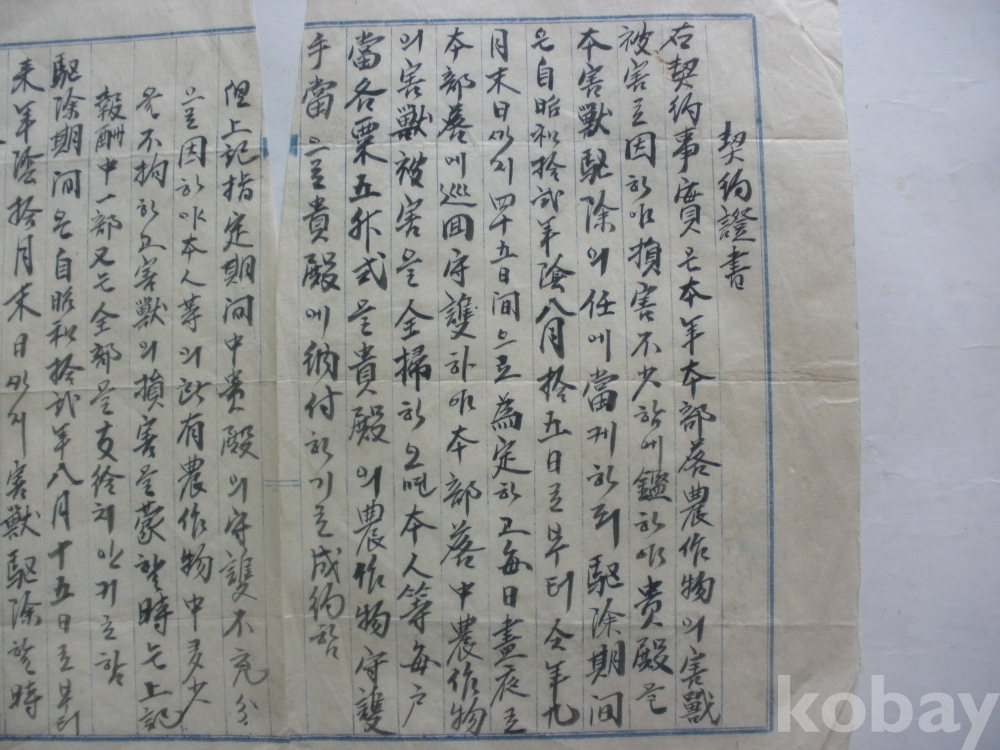 契約證書
右契約事實은本年本部落農作物의害獸
被害로因하야損害不少함에鑑하야貴殿을
本害獸駆除의任에當케하되駆除期间
은自昭和拾弍年陰八月拾五日로부터仝年九
月末日까지四十五日間으로為定하고每日晝夜로
本部落에巡回守護하야本部落中農作物
의害獸被害을全掃하오면本人等每户
當各粟五升式을貴殿의農作物守護
手當으로貴殿에納付하기로成約함
但上記指定期间中貴殿의守護不充分
으로因하야本人等의所有農作物中多少
을不拘하고害獸의損害을蒙할時는上記
報酬中一部又는全部을支給치안키로함
駆除期间은自昭和拾弍年八月十五日로부터
来年陰拾月末日까지害獸駆除할時
kobay